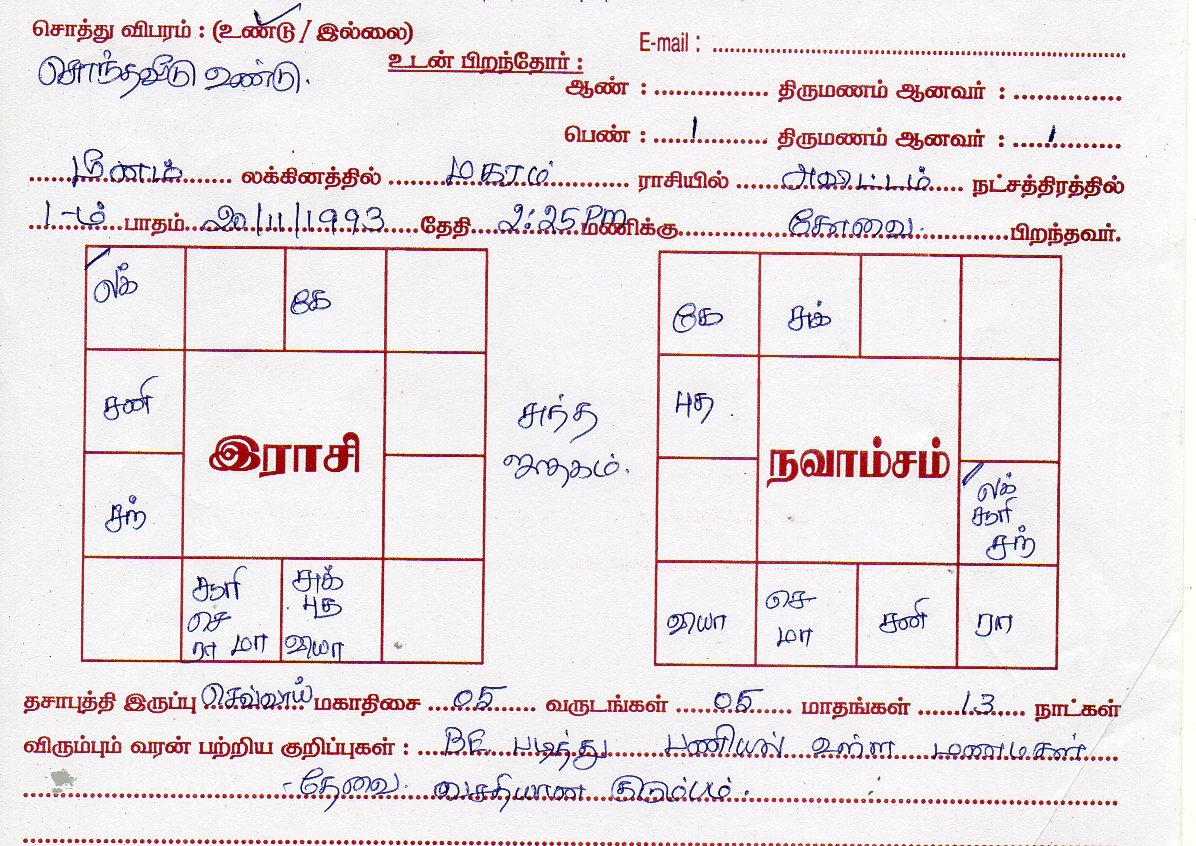 சொத்து விபரம் : (உண்டு / இல்லை)
E-mail : ........................
சொந்தவீடு உண்டு.
உடன் பிறந்தோர் :
ஆண் : ............... திருமணம் ஆனவர் : ..............
பெண் : .....1.......... திருமணம் ஆனவர் : .....1.........
மீனம் லக்கினத்தில் மகரம் ராசியில் அவிட்டம் நட்சத்திரத்தில்
1-ம் பாதம் 20/11/1993 தேதி 2:25 Pm மணிக்கு கோவை. பிறந்தவர்.
லக்
கே
சனி
சந்
இராசி
சூரி
செ
ரா மா
சுக்
புத
வியா
சுத்த
ஜாதகம்.
கே
சுக்
புத
நவாம்சம்
லக்
சூரி
சந்
வியா
செ
மா
சனி
ரா
தசாபுத்தி இருப்பு செவ்வாய் மகாதிசை 05 வருடங்கள் 05 மாதங்கள் 13 நாட்கள்
விரும்பும் வரன் பற்றிய குறிப்புகள் : BE படித்து பணியில் உள்ள மணமகன்
தேவை. வசதியான குடும்பம்.